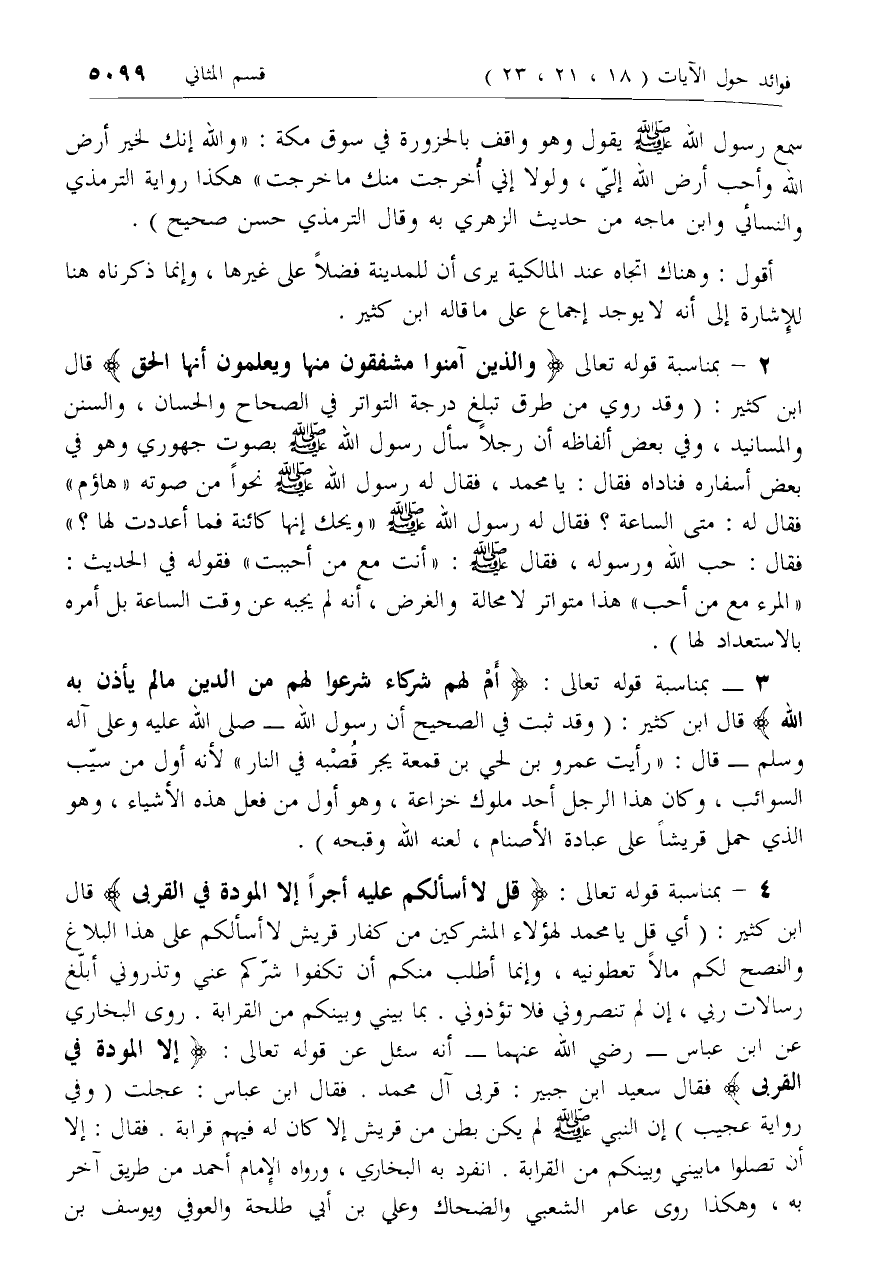 فوائد حول الآيات ( ١٨ ، ٢١ ، ٢٣ ) قسم المثاني ٥٠٩٩
سمع رسول الله ﷺ يقول وهو واقف بالحزورة في سوق مكة : «والله إنك لخير أرض
الله وأحب أرض الله إليّ ، ولولا إني أُخرجت منك ماخرجت» هكذا رواية الترمذي
والنسائي وابن ماجه من حديث الزهري به وقال الترمذي حسن صحيح ) .
أقول : وهناك اتجاه عند المالكية يرى أن للمدينة فضلاً على غيرها ، وإنما ذكرناه هنا
للإشارة إلى أنه لا يوجد إجماع على ماقاله ابن كثير .
٢ - بمناسبة قوله تعالى ﴿ والذين آمنوا مشفقون منها ويعلمون أنها الحق ﴾ قال
ابن كثير : ( وقد روي من طرق تبلغ درجة التواتر في الصحاح والحسان ، والسنن
والمسانيد ، وفي بعض ألفاظه أن رجلاً سأل رسول الله ﷺ بصوت جهوري وهو في
بعض أسفاره فناداه فقال : يامحمد ، فقال له رسول الله ﷺ نحواً من صوته «هاؤم»
فقال له : متى الساعة ؟ فقال له رسول الله ﷺ «ويحك إنها كائنة فما أعددت لها ؟»
فقال : حب الله ورسوله ، فقال ﷺ : «أنت مع من أحببت» فقوله في الحديث :
«المرء مع من أحب» هذا متواتر لامحالة والغرض ، أنه لم يجبه عن وقت الساعة بل أمره
بالاستعداد لها ) .
٣ ــ بمناسبة قوله تعالى : ﴿ أَمْ لهم شركاء شرعوا لهم من الدين مالم يأذن به
الله ﴾ قال ابن كثير : ( وقد ثبت في الصحيح أن رسول الله ــ صلى الله عليه وعلى آله
وسلم ــ قال : «رأيت عمرو بن لحي بن قمعة يجر قُصْبه في النار» لأنه أول من سيّب
السوائب ، وكان هذا الرجل أحد ملوك خزاعة ، وهو أول من فعل هذه الأشياء ، وهو
الذي حمل قريشاً على عبادة الأصنام ، لعنه الله وقبحه ) .
٤ - بمناسبة قوله تعالى : ﴿ قل لاأسألكم عليه أجراً إلا المودة في القربى ﴾ قال
ابن كثير : ( أي قل يامحمد لهؤلاء المشركين من كفار قريش لاأسألكم على هذا البلاغ
والنصح لكم مالاً تعطونيه ، وإنما أطلب منكم أن تكفوا شرّكم عني وتذروني أبلّغ
رسالات ربي ، إن لم تنصروني فلا تؤذوني . بما بيني وبينكم من القرابة . روى البخاري
عن ابن عباس ــ رضي الله عنهما ــ أنه سئل عن قوله تعالى : ﴿ إلا المودة في
القربى ﴾ فقال سعيد ابن جبير : قربى آل محمد . فقال ابن عباس : عجلت ( وفي
رواية عجيب ) إن النبي ﷺ لم يكن بطن من قريش إلا كان له فيهم قرابة . فقال : إلا
أن تصلوا مابيني وبينكم من القرابة . انفرد به البخاري ، ورواه الإمام أحمد من طريق آخر
به ، وهكذا روى عامر الشعبي والضحاك وعلي بن أبي طلحة والعوفي ويوسف بن